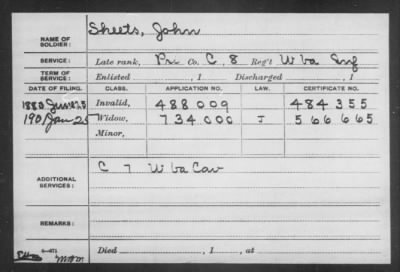 NAME OF SOLDIER: Sheets, John
SERVICE: Late rank, Pri Co. C, 8 Reg't W Va Inf
TERM OF SERVICE: Enlisted , 1 Discharged , 1
DATE OF FILING. CLASS. APPLICATION NO. LAW. CERTIFICATE NO.
1880 June 25 Invalid, 488009 484355
1901 Jan 25 Widow, 734000 J 566665
Minor,
ADDITIONAL SERVICES: C 7 W Va Cav
REMARKS:
Died , 1 , at